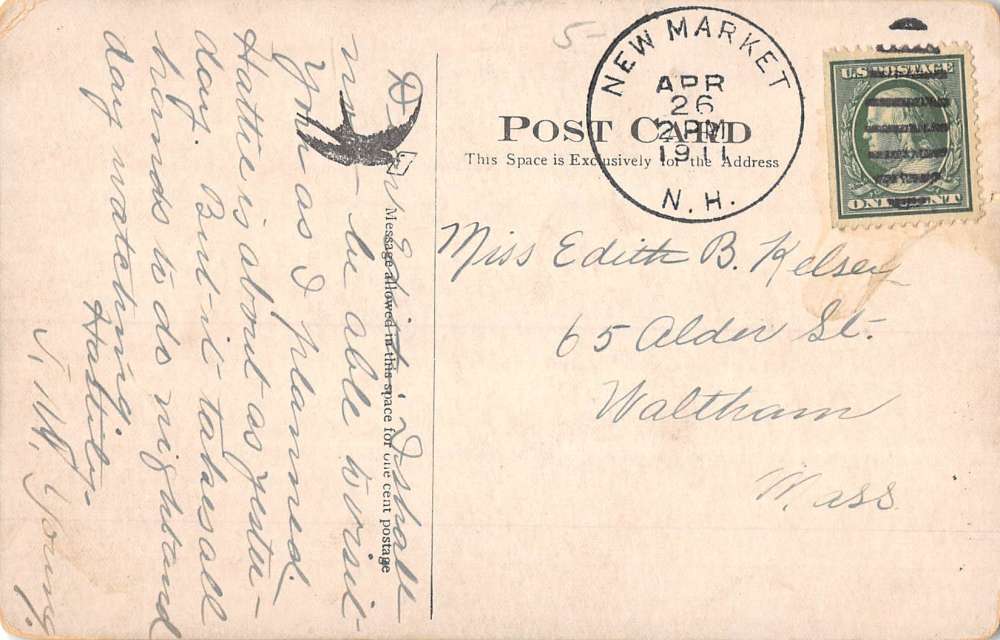 5-
NEW MARKET
APR
26
2 PM
1911
N.H.
U.S. POSTAGE
ONE CENT
POST CARD
This Space is Exclusively for the Address
Message allowed in this space for one cent postage
Miss Edith B. Kelsey
65 Alder St.
Waltham
Mass
Dear Edith: I shall
not be able to visit
you as I planned.
Hattie is about as yester-
day. But it takes all
hands to do night and
day watching.
Hastily,
J. W. Young.